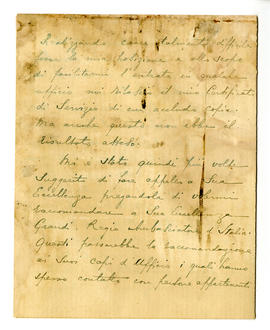 Realizzando come italmente difficile
fosse la mia posizione e allo scopo
di facilitarmi l'entrata in qualche
ufficio mi rilasciò il mio Certificato
di Servizio di cui accludo copia.
Ma anche questo non ebbe il
risultato atteso.
Mi è stato quindi più volte
suggerito di fare appello a Sua
Eccellenza pregandola di volermi
raccomandare a Sua Eccellenza
Grandi Regio Ambasciatore d'Italia.
Questi passerebbe la raccomandazione
ai Suoi capi d'Ufficio i quali hanno
spesso contatto con persone appartenenti